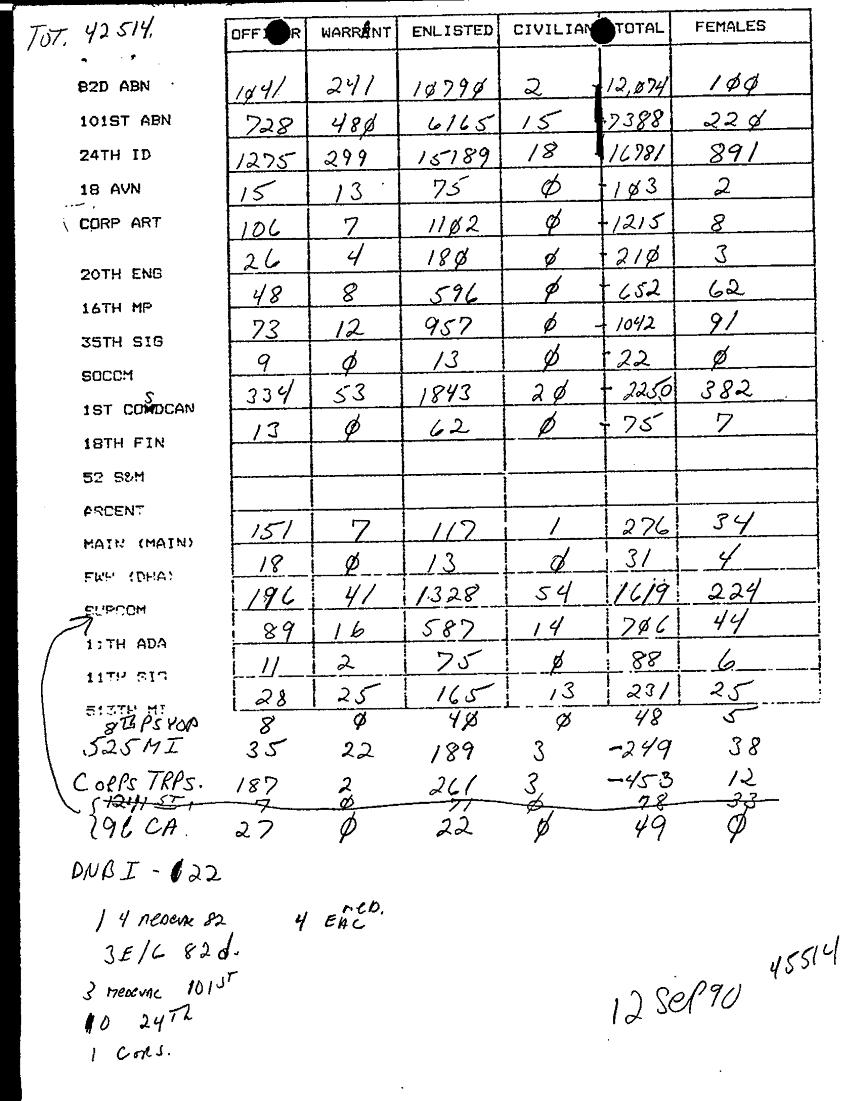 TOT. 42514.
OFF R WARRANT ENLISTED CIVILIAN TOTAL FEMALES
82D ABN 1041 241 10790 2 -12,074 100
101ST ABN 728 480 6165 15 -7388 220
24TH ID 1275 299 15189 18 16781 891
18 AVN 15 13 75 0 -103 2
CORP ART 106 7 1102 0 -1215 8
20TH ENG 26 4 180 0 -210 3
16TH MP 48 8 596 0 -652 62
35TH SIG 73 12 957 0 -1042 91
SOCCM 9 0 13 0 22 0
S
1ST COMDCAN 334 53 1843 20 -2250 382
18TH FIN 13 0 62 0 -75 7
52 S&M
ARCENT
MAIN (MAIN) 151 7 117 1 276 34
FWD (DHA) 18 0 13 0 31 4
SUPCOM 196 41 1328 54 1619 224
11TH ADA 89 16 587 14 706 44
11TH SIG 11 2 75 0 88 6
513TH MI 28 25 165 13 231 25
8TH PSYOP 8 0 40 0 48 5
525 MI 35 22 189 3 -249 38
CORPS TRPS. 187 2 261 3 -453 12
7 0 71 0 78 33
96 CA. 27 0 22 0 49 0
DNBI - 22
14 MEDEVAC 82 4 EAC MED.
3E/6 82d.
3 MEDEVAC 101ST
10 24TH
1 CORS.
12 SEP 90 45514